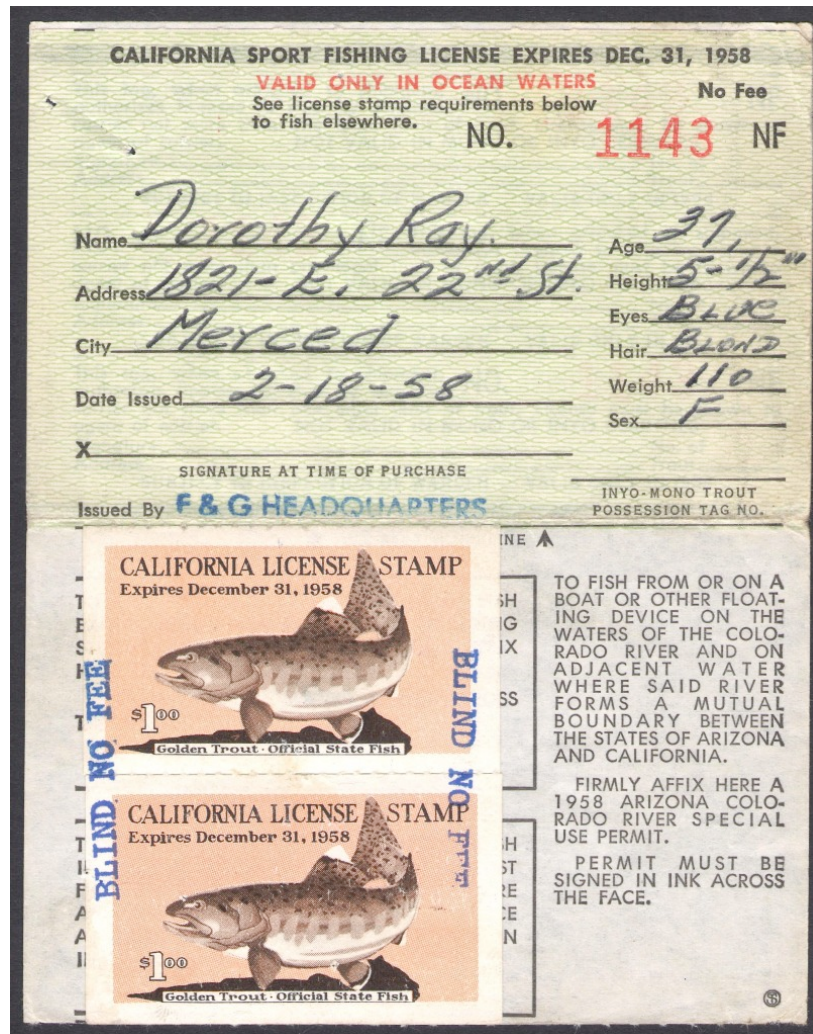 CALIFORNIA SPORT FISHING LICENSE EXPIRES DEC. 31, 1958
VALID ONLY IN OCEAN WATERS
No Fee
See license stamp requirements below
to fish elsewhere.
NO. 1143 NF
Name Dorothy Ray.
Age 37,
Address 1821-E. 22nd St.
Height 5-1/2"
City Merced
Eyes BLUE
Hair BLOND
Date Issued 2-18-58
Weight 110
Sex F
X
SIGNATURE AT TIME OF PURCHASE
Issued By F & G HEADQUARTERS
INYO-MONO TROUT
POSSESSION TAG NO.
INE
CALIFORNIA LICENSE STAMP
Expires December 31, 1958
$1.00
Golden Trout · Official State Fish
BLIND NO FEE
BLIND NO FEE
CALIFORNIA LICENSE STAMP
Expires December 31, 1958
$1.00
Golden Trout · Official State Fish
TO FISH FROM OR ON A
BOAT OR OTHER FLOAT-
ING DEVICE ON THE
WATERS OF THE COLO-
RADO RIVER AND ON
ADJACENT WATER
WHERE SAID RIVER
FORMS A MUTUAL
BOUNDARY BETWEEN
THE STATES OF ARIZONA
AND CALIFORNIA.
FIRMLY AFFIX HERE A
1958 ARIZONA COLO-
RADO RIVER SPECIAL
USE PERMIT.
PERMIT MUST BE
SIGNED IN INK ACROSS
THE FACE.